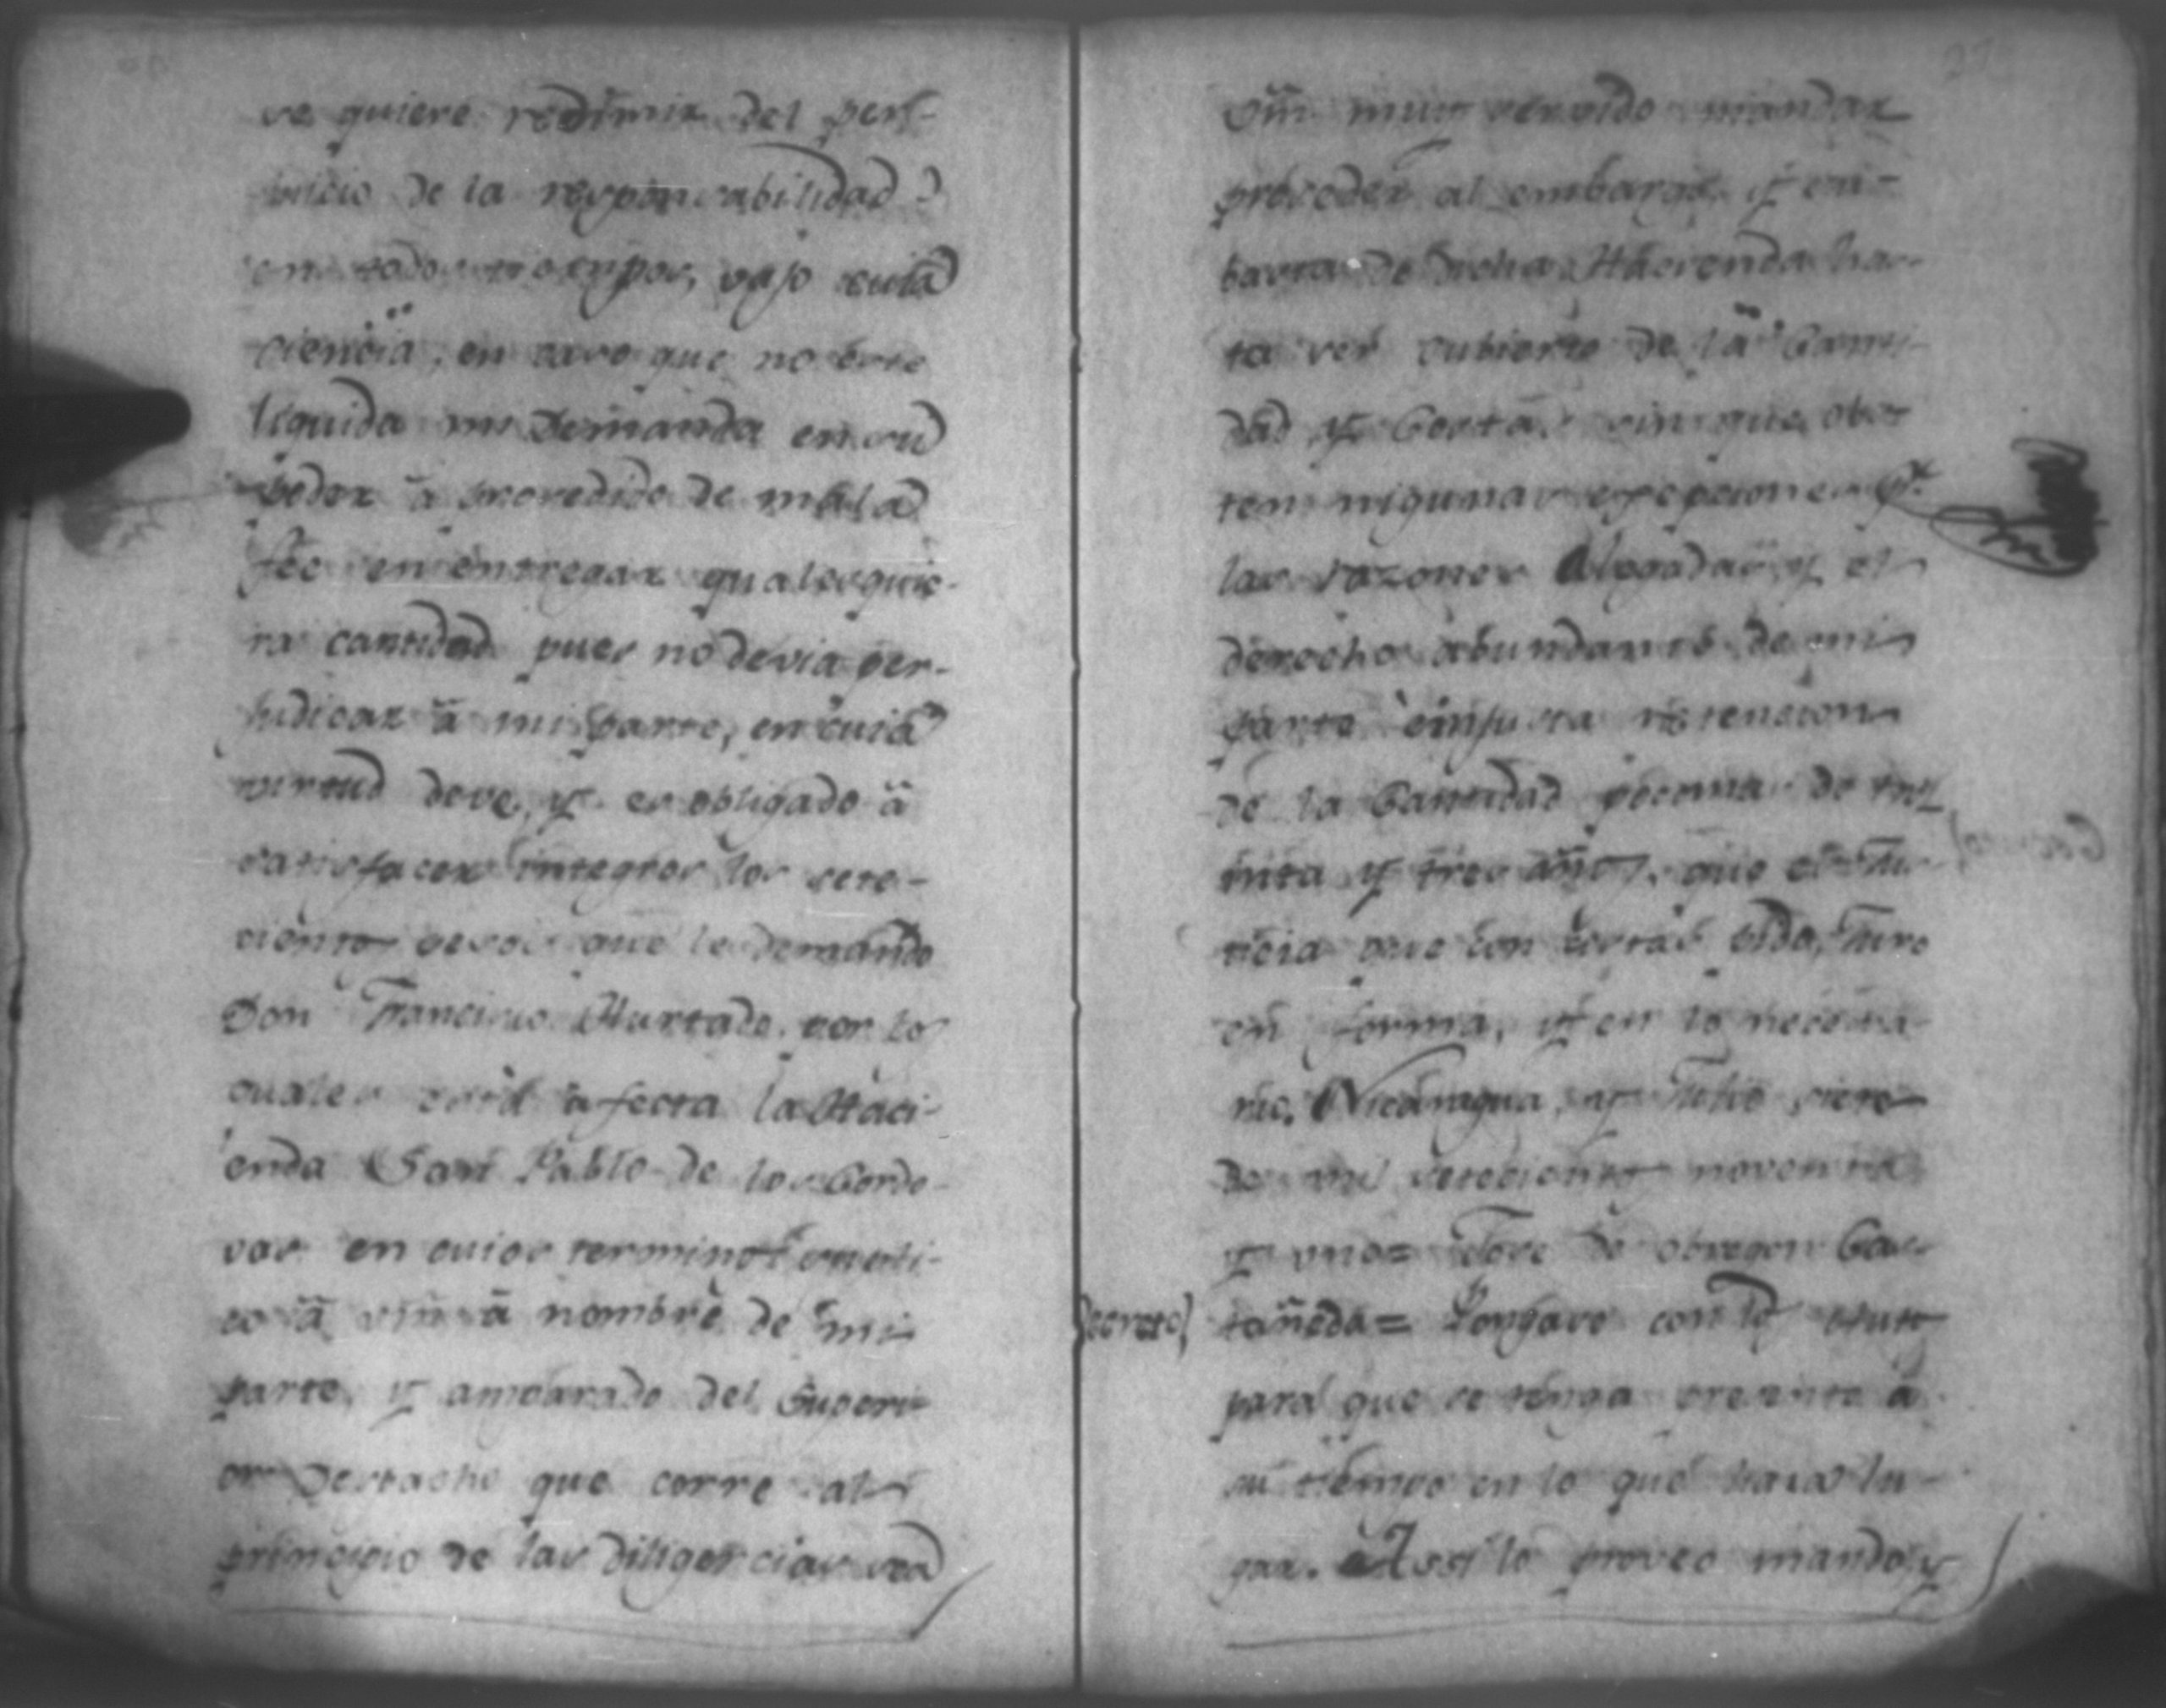 se quiere redimir del per-
juicio de la responsabilidad
en todos tiempos, vajo cuia
ciencia, en caso que no este
liquida mi Demanda en su
poder à procedido de mala
fèe en entregar qualesquie-
ra cantidad pues no devia per-
judicar à mi parte, en cuia
virtud deve, y es obligado à
satisfacer integros los sete-
cientos pesos que le demando
Don Francisco Hurtado por los
quales està afecta la Haci-
enda San Pablo de los Cordo-
vas en cuios terminos suppli-
co à Vm à nombre de mi
parte, y amparado del Superi-
or Despacho que corre al
principio de las diligencias sea
27
Vm mui servido mandar
proceder al embargo, y en
de dicha Hacienda has-
ta ser cubierto de la Canti-
dad y Costas, sin que obs-
ten nigunas excepciones pr.
las razones Alegadas, y el
derecho abundante de mi
parte è injusta retencion
de la Cantidad pecunia de tre-
inta y tres años, que es Jus-
ticia que con Costas pido, Juro
en forma, y en lo necesa-
rio. Nicaragua, y Julio siete
de mil setecientos noventa
y uno = Jose de obregon Cas-
Decreto) tañeda = Pongase con los Autos
para que se tenga presente à
su tiempo en lo que haia lu-
gar. Assi lo proveo mando, y